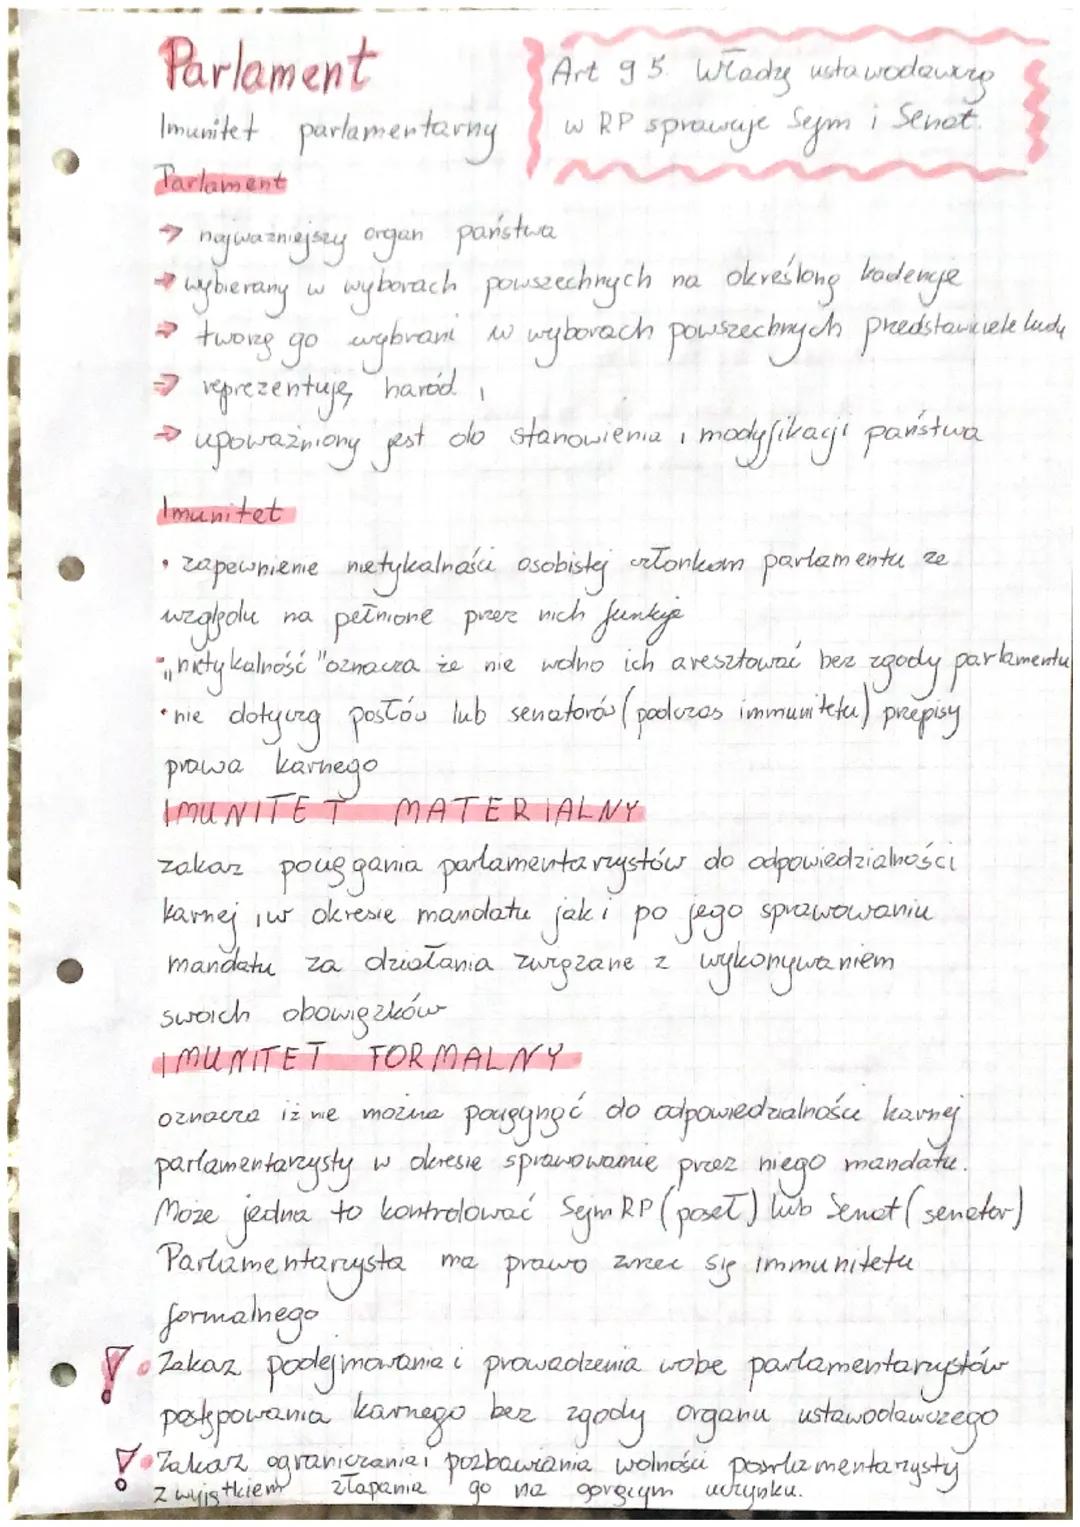 Parlament
Imunitet parlamentarny
Art 95. Władzę ustawodawczą
w RP sprawuje Sejm i Senat.
Parlament
→ najważniejszy organ państwa
→ wybierany w wyborach powszechnych na określoną kadencję
→ tworzą go wybrani w wyborach powszechnych przedstawiciele ludu
→ reprezentuję naród
→ upoważniony jest do stanowienia i modyfikacji państwa
Imunitet
• zapewnienie nietykalności osobistej członkom parlamentu ze
względu na pełnione przez nich funkcje
• „nietykalność" oznacza że nie wolno ich aresztować bez zgody parlamentu
• nie dotyczą posłów lub senatorów (podczas immunitetu) przepisy
prawa karnego
IMUNITET MATERIALNY
zakaz pociągania parlamentarzystów do odpowiedzialności
karnej, w okresie mandatu jak i po jego sprawowaniu
mandatu za działania związane z wykonywaniem
swoich obowiązków
IMUNITET FORMALNY
oznacza iż nie można pociągnąć do odpowiedzialności karnej
parlamentarzysty w okresie sprawowanie przez niego mandatu.
Może jedna to kontrolować Sejm RP (poseł) lub Senat (senator)
Parlamentarzysta ma prawo zrzec się immunitetu
formalnego
! • Zakaz podejmowania i prowadzenia wobe parlamentarzystów
postępowania karnego bez zgody organu ustawodawczego
! • Zakaz ograniczania i pozbawiania wolności parlamentarzysty
z wyjątkiem złapania go na gorącym uczynku.